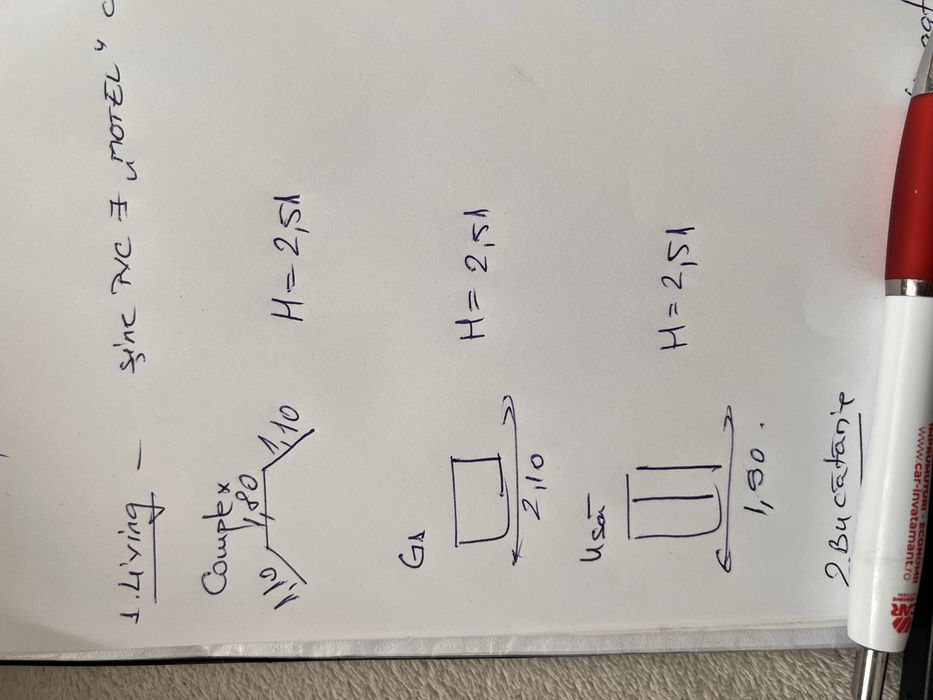 1. Living – șine PVC "MOTEL"
Complex
1,10 1,80 1,10 H = 2,51
G1
2,10 H = 2,51
Ușă
1,90. H = 2,51
2. Bucătărie
ÎMPRUMUTURI - ECONOMII
www.car-invatamant.ro
CAR